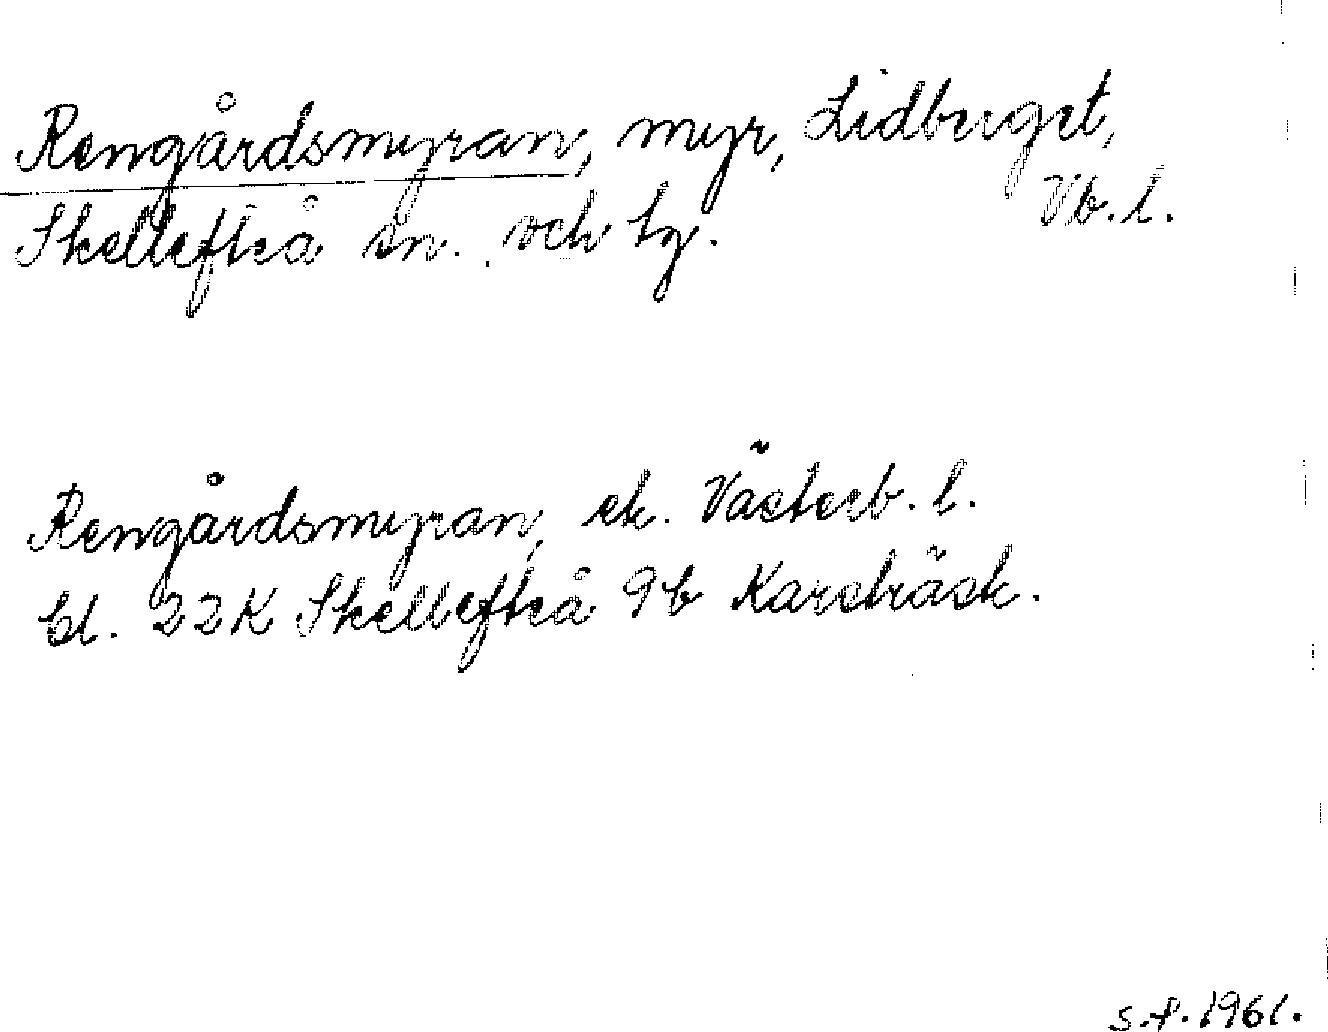 Rengårdsmyran, myr, Lidberget,
Skellefteå sn. och tg. Vb. l.
Rengårdsmyran, ek. Västerb. l.
bl. 22K Skellefteå 9b Karsbäck.
s.f. 1961.